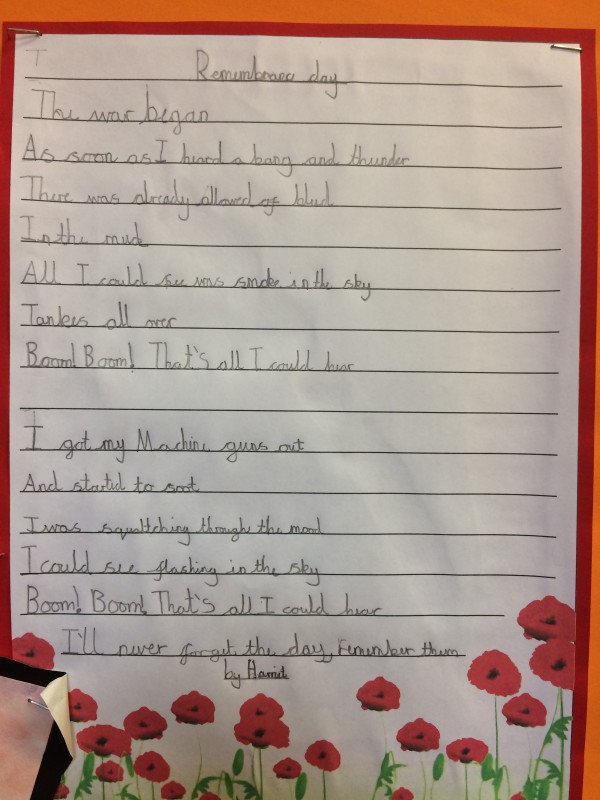 T
Remembrance day
The war began
As soon as I heard a bang and thunder
There was already allowed of blud
In the mud
All I could see was smoke in the sky
Tankes all over
Boom! Boom! That's all I could hear
I got my Machine guns out
And started to soot
I was squaltching through the mood
I could see flashing in the sky
Boom! Boom! That's all I could hear
I'll never forget the day, remember them
by Hamid